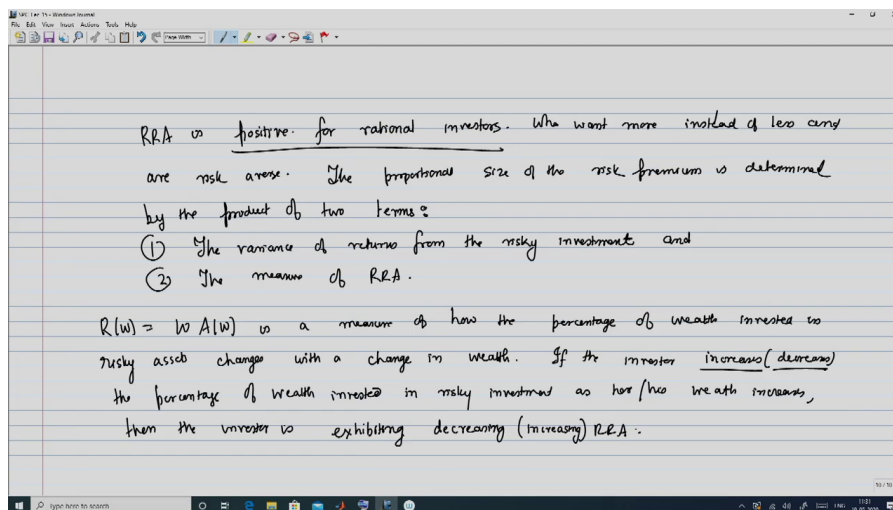 SPC Lec 15 - Windows Journal
File Edit View Insert Actions Tools Help
Page Width
RRA is positive. for rational investors. Who want more instead of less and
are risk averse. The proportional size of the risk premium is determined
by the product of two terms:
① The variance of returns from the risky investment and
② The measure of RRA.
R(W) = W A(W) is a measure of how the percentage of wealth invested in
risky asset changes with a change in wealth. If the investor increases (decreases)
the percentage of wealth invested in risky investment as her/his weath increases,
then the investor is exhibiting decreasing (increasing) RRA.
10 / 10
Type here to search
ENG
11:31